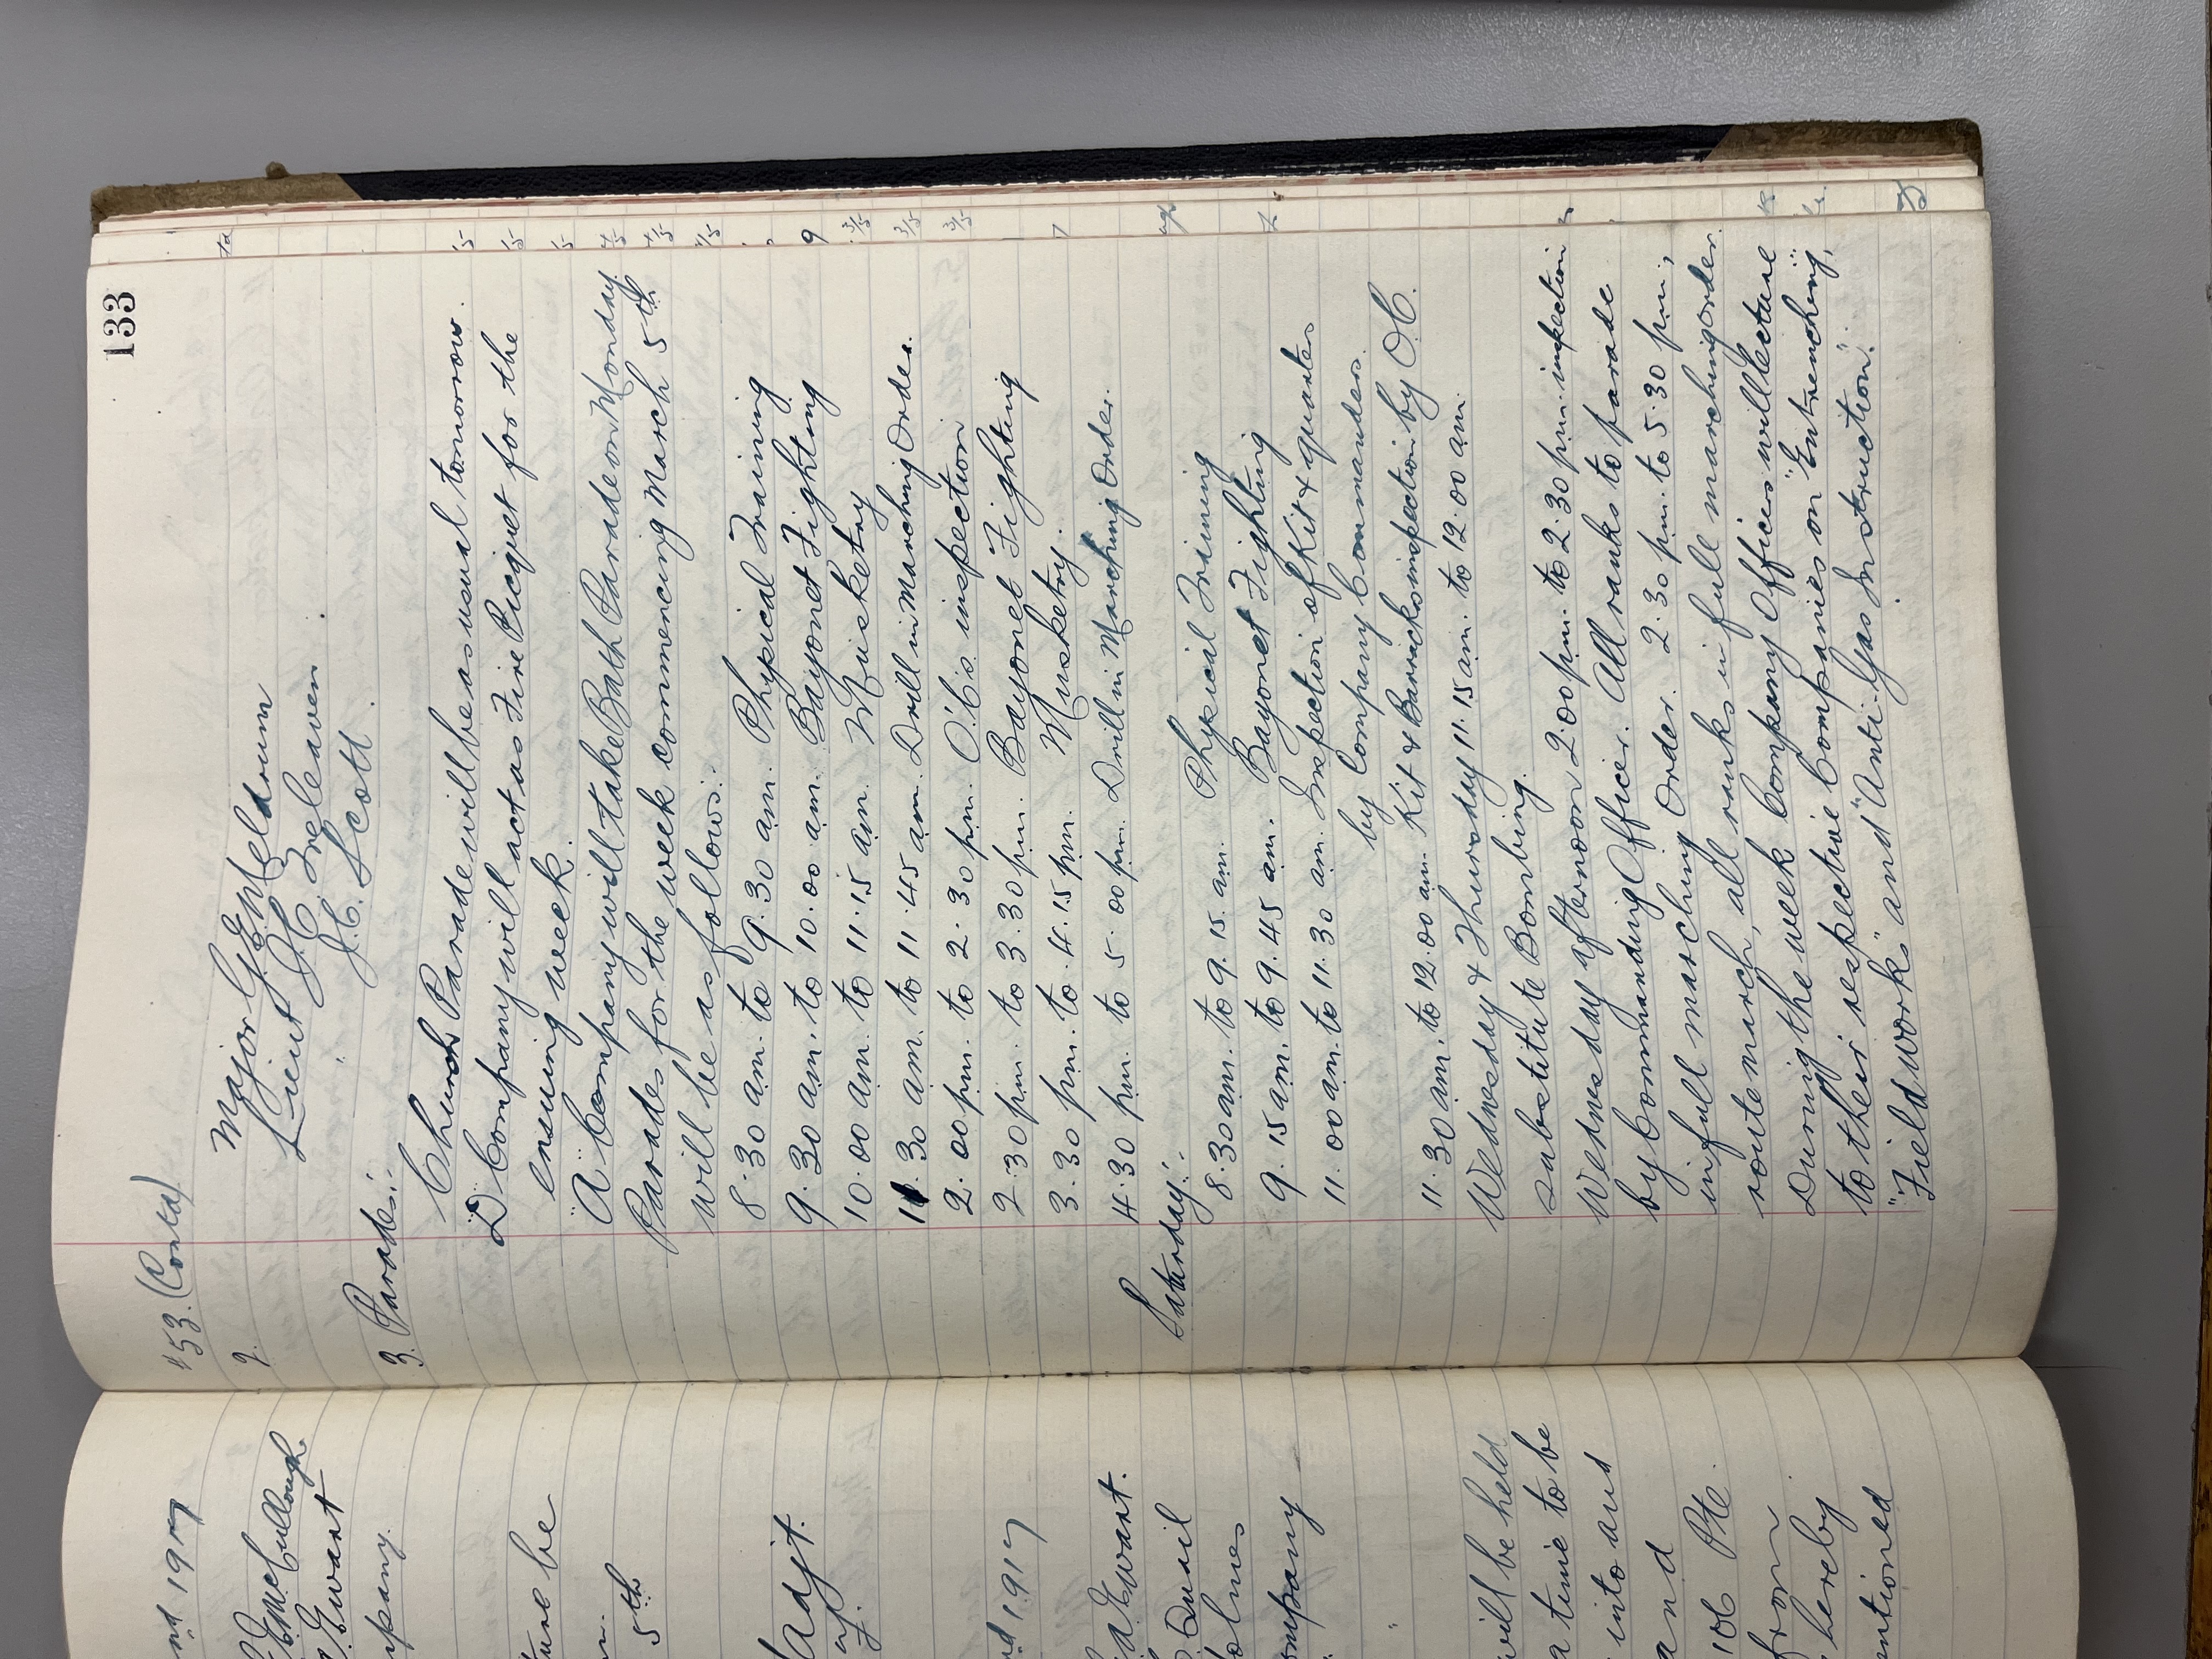 133
453. (Contd)
2.
Major G. E. Meldrum
Lieut J. C. Treleaven
" J. C. Scott.
3. Parades:-
Church Parade will be as usual tomorrow.
"D" Company will act as Fire Picquet for the
ensuing week.
"A" Company will take Bath Parade on Monday.
Parades for the week commencing March 5th
will be as follows:-
8.30 am. to 9.30 am. Physical Training
9.30 am. to 10.00 am. Bayonet Fighting
10.00 am. to 11.15 am. Musketry
11.30 am. to 11.45 am. Drill in Marching Order.
2.00 pm. to 2.30 pm. O.C's inspection
2.30 pm. to 3.30 pm. Bayonet Fighting
3.30 pm. to 4.15 pm. Musketry.
4.30 pm. to 5.00 pm. Drill in Marching Order.
Saturday:-
8.30 am. to 9.15 am. Physical Training
9.15 am. to 9.45 am. Bayonet Fighting
11.00 am. to 11.30 am. Inspection of Kit & quarters
by Company Commanders.
11.30 am. to 12.00 am. Kit & Barracks inspection by O.C.
Wednesday & Thursday 11.15 am. to 12.00 am.
substitute Bombing.
Wednesday afternoon 2.00 pm. to 2.30 pm. inspection
by Commanding Officer. All ranks to parade
in full marching Order. 2.30 pm. to 5.30 pm,
route march, all ranks in full marching order.
During the week Company Officers will lecture
to their respective Companies on "Entrenching",
"Field works" and "Anti-Gas Instruction".
nd 1917
E. McCullough
Ewart
mpany.
ture be
5th
Adjt.
nd 1917
Ewart.
Quail
olmes
ompany
will be held
a time to be
into and
and
106 Pte.
from
hereby
entioned